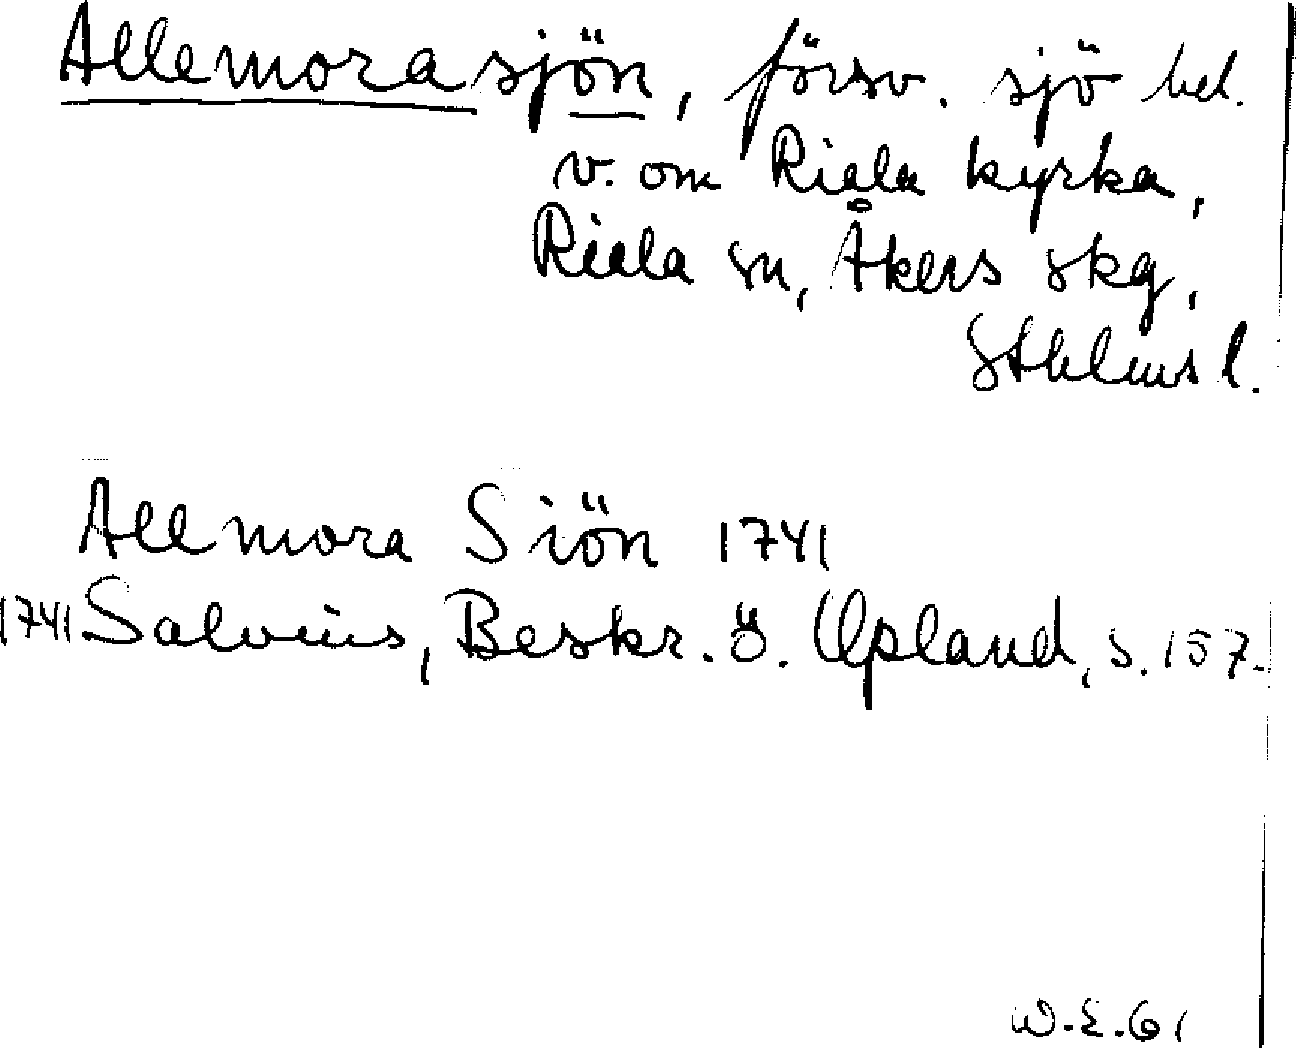 Allemorasjön, försv. sjö bel.
v. om Riala kyrka,
Riala sn, Åkers skg,
Sthlms l.
Allmora Siön 1741
1741 Salvius, Beskr. ö. Upland, s. 157.
W.E.61